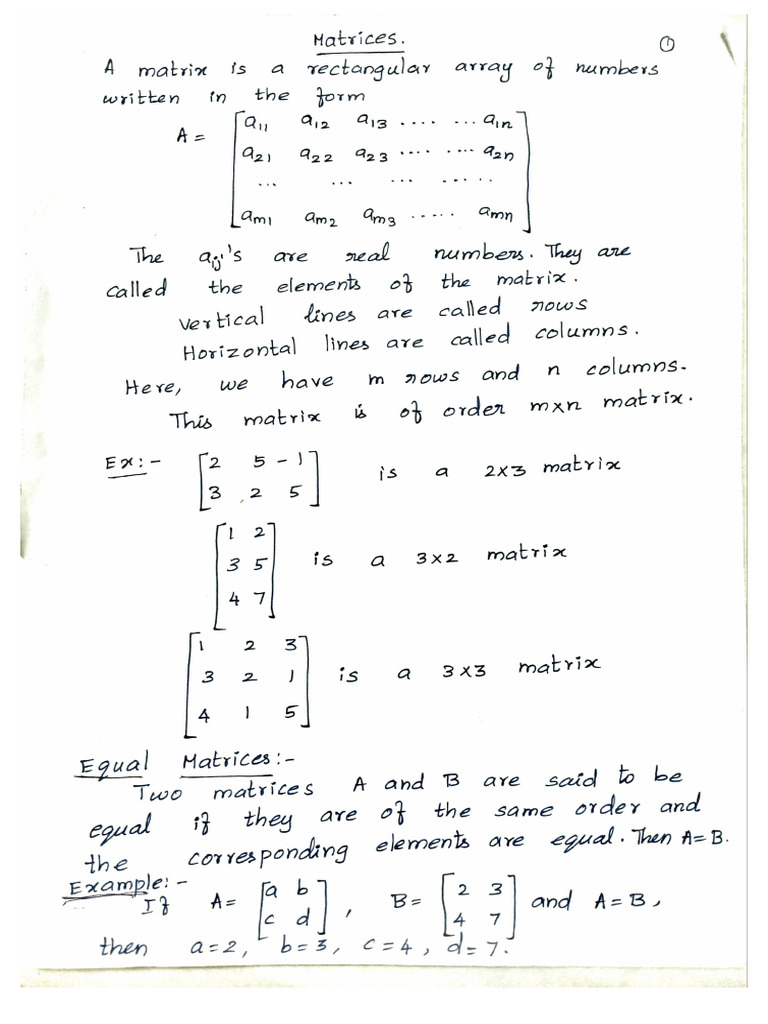 Matrices. ①
A matrix is a rectangular array of numbers
written in the form
A = [a11 a12 a13 .... ... a1n
a21 a22 a23 .... .... a2n
... ... ... .. ...
am1 am2 am3 ..... amn]
The aij's are real numbers. They are
called the elements of the matrix.
Vertical lines are called rows
Horizontal lines are called columns.
Here, we have m rows and n columns.
This matrix is of order m×n matrix.
Ex:- [2 5 -1
3 2 5] is a 2×3 matrix
[1 2
3 5
4 7] is a 3×2 matrix
[1 2 3
3 2 1
4 1 5] is a 3×3 matrix
Equal Matrices:-
Two matrices A and B are said to be
equal if they are of the same order and
the corresponding elements are equal. Then A=B.
Example:-
If A= [a b
c d], B= [2 3
4 7] and A=B,
then a=2, b=3, c=4, d=7.